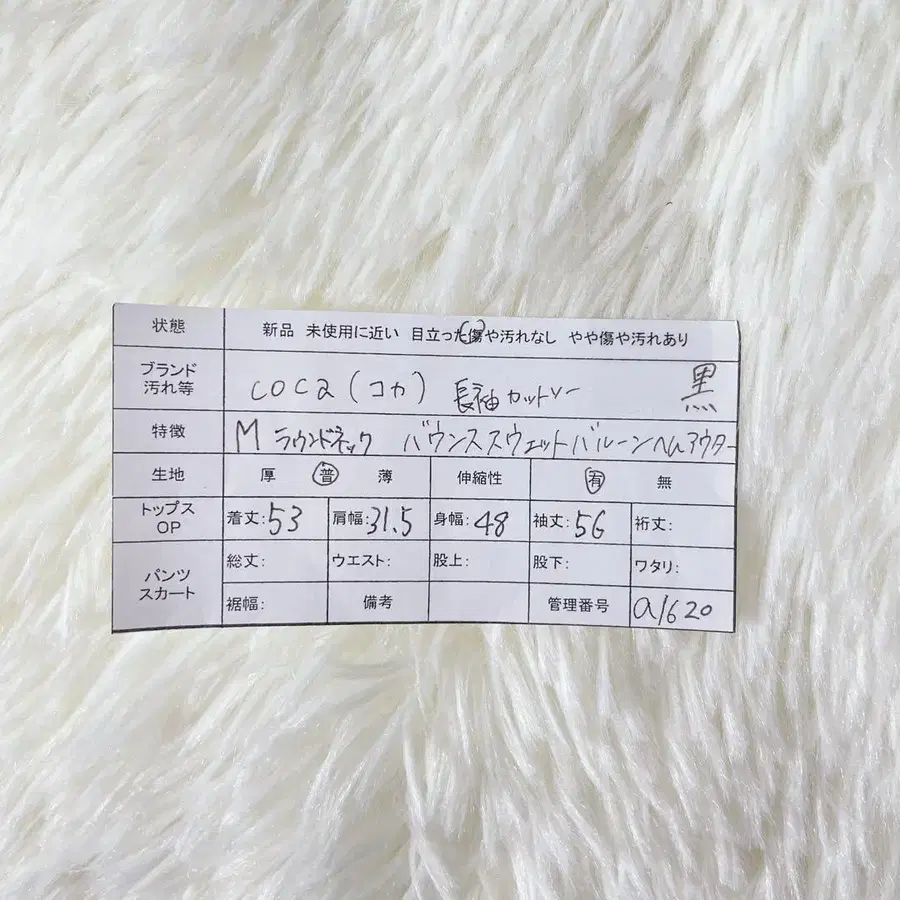 状態 新品 未使用に近い 目立った傷や汚れなし やや傷や汚れあり
ブランド
汚れ等 coca (コカ) 長袖カットソー 黒
特徴 M ラウンドネック バウンススウェットバルーンヘムアウター
生地 厚 普 薄 伸縮性 有 無
トップス
OP 着丈:53 肩幅:31.5 身幅:48 袖丈:56 裄丈:
パンツ
スカート 総丈: ウエスト: 股上: 股下: ワタリ:
裾幅: 備考 管理番号 a1620